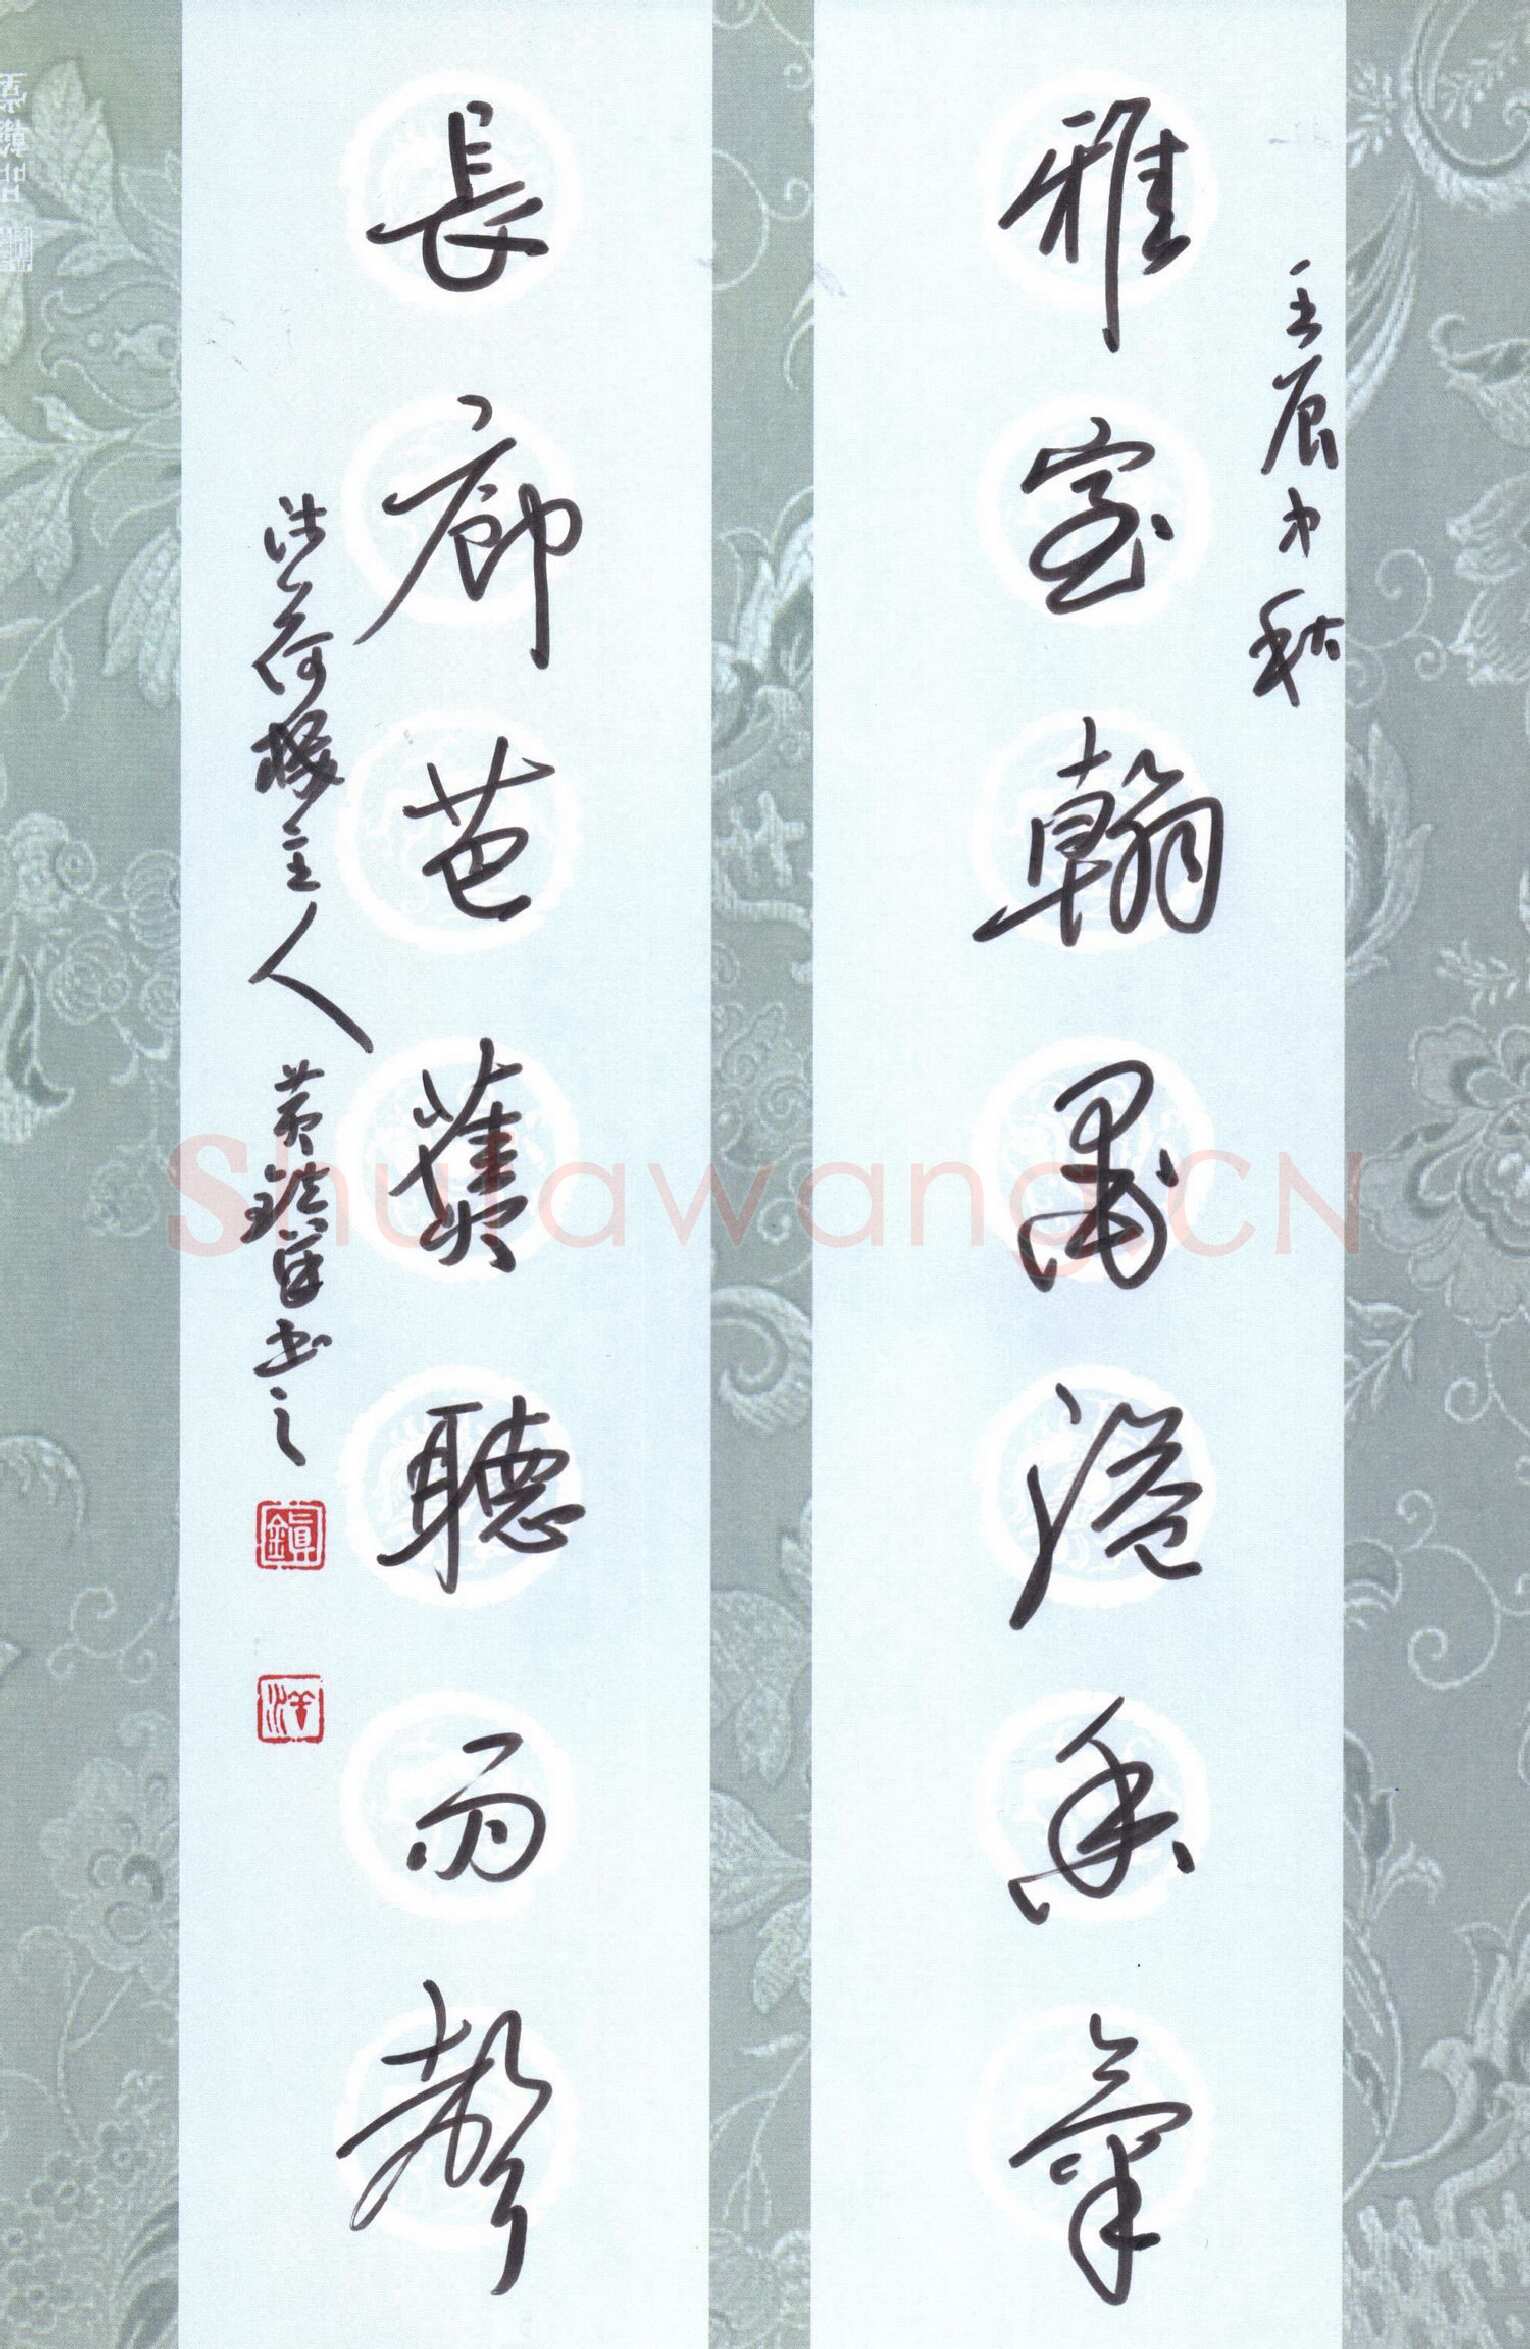 壬辰中秋
雅室翰墨溢香氣
長廊芭蕉聽雨聲
荷樓主人 黃鎮洋書之
鎮
洋
ShufawangCN